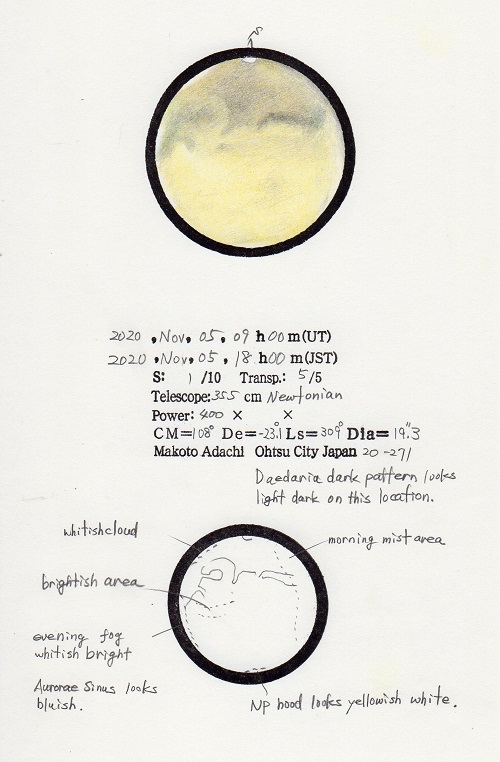 S
2020 , Nov, 05, 09 h 00 m (UT)
2020 , Nov, 05, 18 h 00 m (JST)
S: 1 /10 Transp.: 5 /5
Telescope: 355 cm Newtonian
Power: 400 × ×
CM=108° De=-23.1 Ls=309° Dia=19".3
Makoto Adachi Ohtsu City Japan 20-271
Daedaria dark pattern looks
light dark on this location.
whitish cloud
morning mist area
brightish area
evening fog
whitish bright
Aurorae Sinus looks
bluish.
NP hood looks yellowish white.